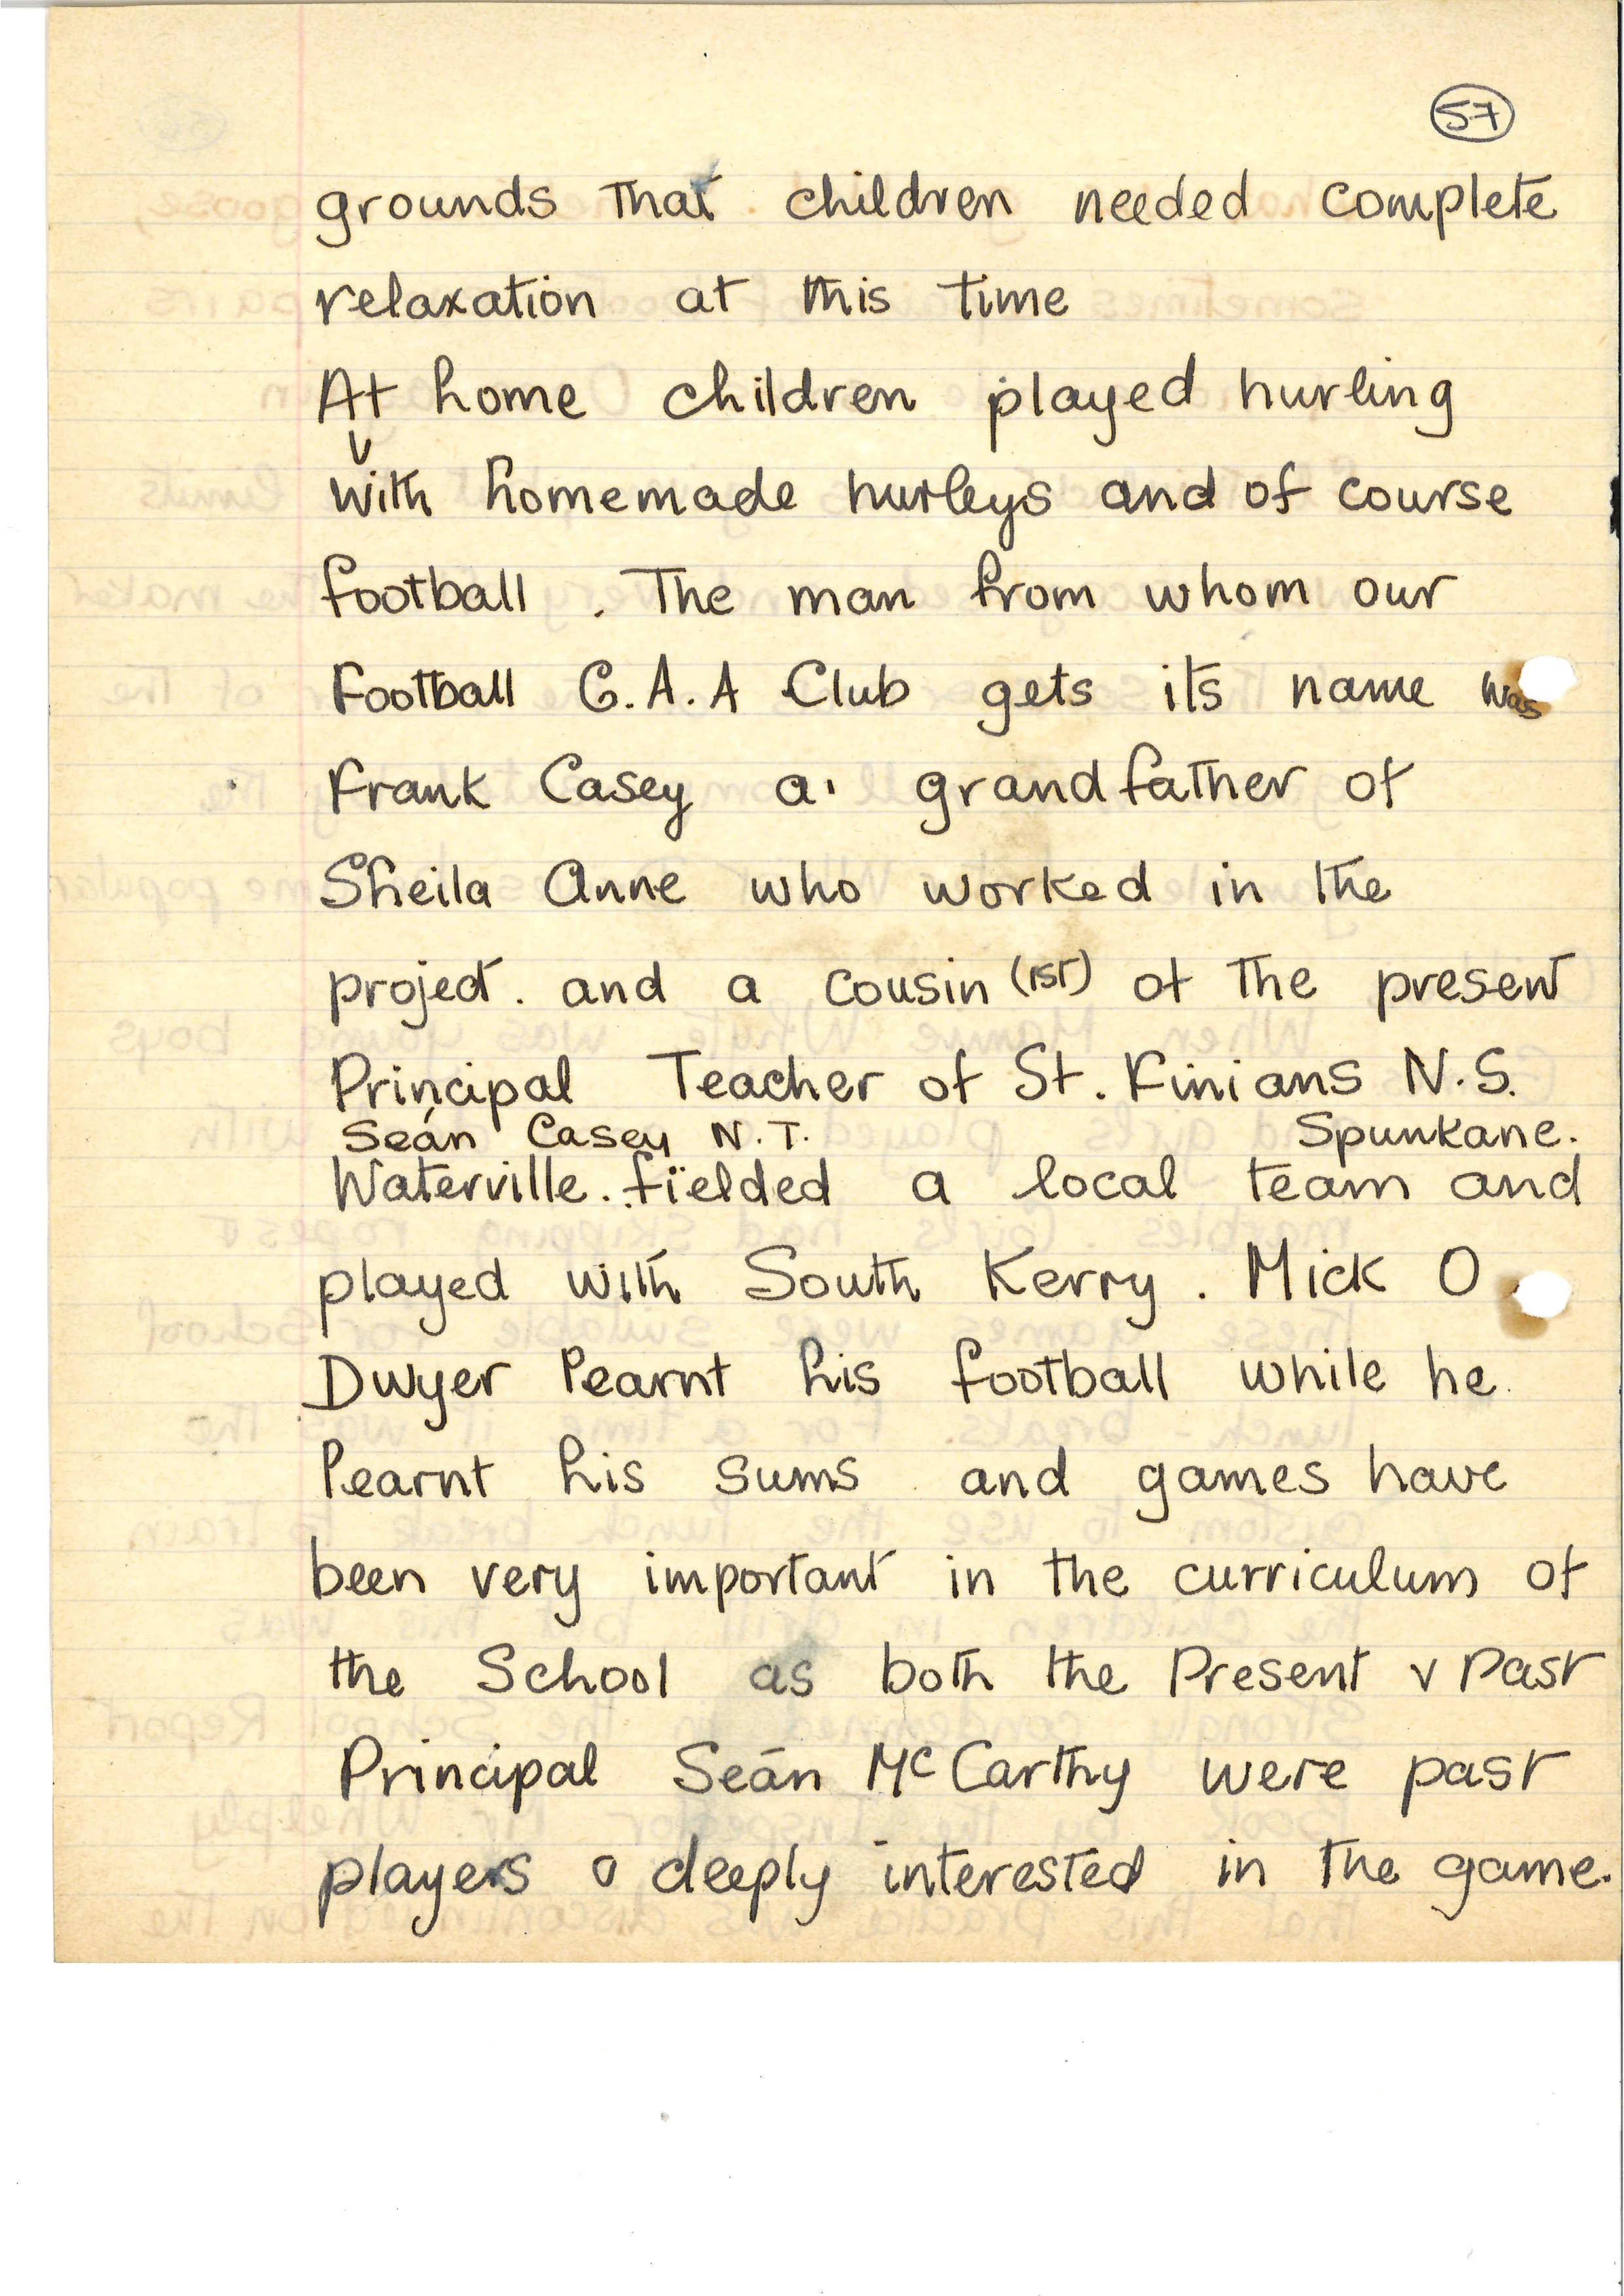 57
grounds that children needed complete
relaxation at this time
At home children played hurling
with homemade hurleys and of course
football . The man from whom our
Football G.A.A Club gets its name was
Frank Casey a grandfather of
Sheila Anne who worked in the
project . and a cousin (1st) of the present
Principal Teacher of St. Finians N.S.
Seán Casey N.T. Spunkane.
Waterville . fielded a local team and
played with South Kerry . Mick O
Dwyer learnt his football while he
learnt his sums and games have
been very important in the curriculum of
the School as both the Present & Past
Principal Seán McCarthy were past
players & deeply interested in the game.